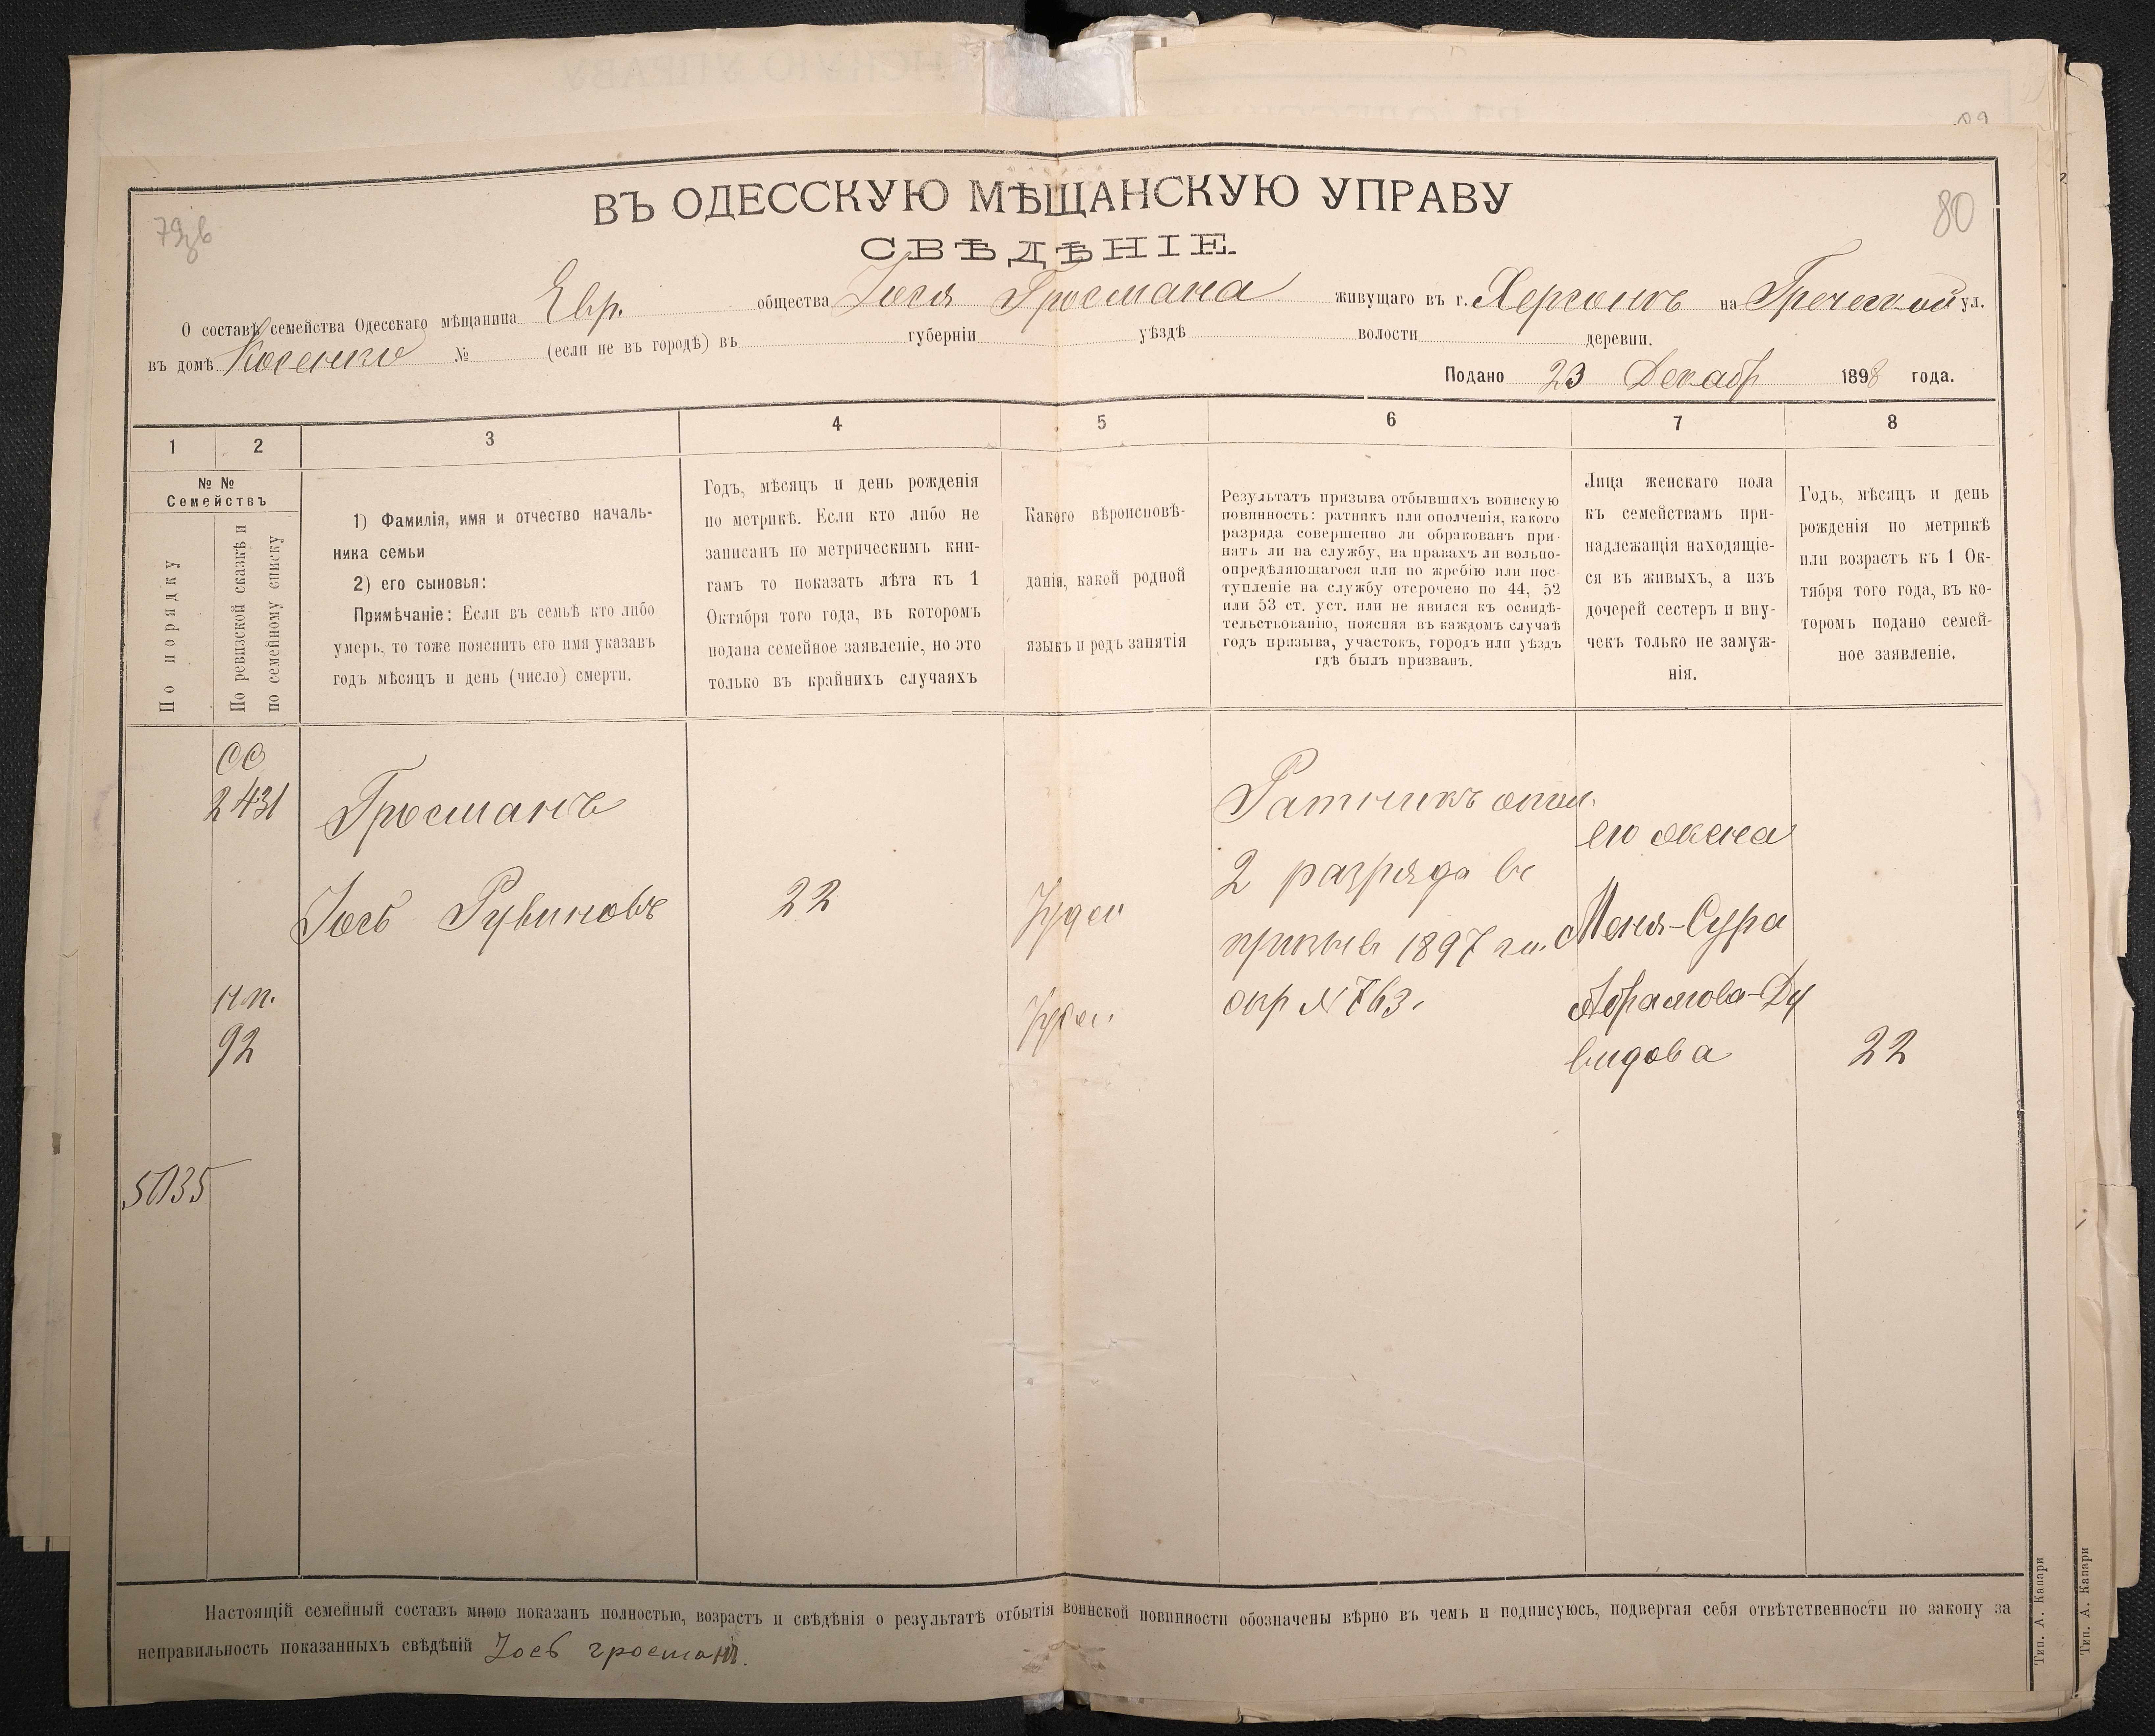 ВЪ ОДЕССКУЮ МѢЩАНСКУЮ УПРАВУ
80
СВѢДѢНІЕ.
О составѣ семейства Одесскаго мѣщанина Евр. общества Іося Гросмана живущаго въ г. Херсонѣ на Греческой ул.
въ домѣ Косенко № (если не въ городѣ) въ губерніи уѣздѣ волости деревни.
Подано 23 Декабр 1898 года.
1 2 3 4 5 6 7 8
№ №
Семействъ
По порядку
По ревизской сказкѣ и
по семейному списку
1) Фамилія, имя и отчество началь-
ника семьи
2) его сыновья:
Примѣчаніе: Если въ семьѣ кто либо
умеръ, то тоже пояснить его имя указавъ
годъ мѣсяцъ и день (число) смерти.
Годъ, мѣсяцъ и день рожденія
по метрикѣ. Если кто либо не
записанъ по метрическимъ кни-
гамъ то показать лѣта къ 1
Октября того года, въ которомъ
подана семейное заявленіе, но это
только въ крайнихъ случаяхъ
Какого вѣроисповѣ-
данія, какой родной
языкъ и родъ занятія
Результатъ призыва отбывшихъ воинскую
повинность: ратникъ или ополченія, какого
разряда совершенно ли обракованъ при-
нятъ ли на службу, на правахъ ли вольно-
опредѣляющагося или по жребію или пос-
тупленіе на службу отсрочено по 44, 52
или 53 ст. уст. или не явился къ освидѣ-
тельствованію, поясняя въ каждомъ случаѣ
годъ призыва, участокъ, городъ или уѣздъ
гдѣ былъ призванъ.
Лица женскаго пола
къ семействамъ при-
надлежащія находящіе-
ся въ живыхъ, а изъ
дочерей сестеръ и вну-
чекъ только не замуж-
нія.
Годъ, мѣсяцъ и день
рожденія по метрикѣ
или возрастъ къ 1 Ок-
тября того года, въ ко-
торомъ подано семей-
ное заявленіе.
2431
Гросманъ
Іось Рувиновъ
22
Іудей
Іудей
нп.
92
5035
Ратникъ опол.
2 разряда въ
призывъ 1897 г.
№ 763.
его жена
Меня-Сура
Абрамова-Ду
видова
22
Настоящій семейный составъ мною показанъ полностью, возрастъ и свѣдѣнія о результатѣ отбытія воинской повинности обозначены вѣрно въ чемъ и подписуюсь, подвергая себя отвѣтственности по закону за
неправильность показанныхъ свѣдѣній Іосъ гросман.
Тип. А. Капари
Тип. А. Капари